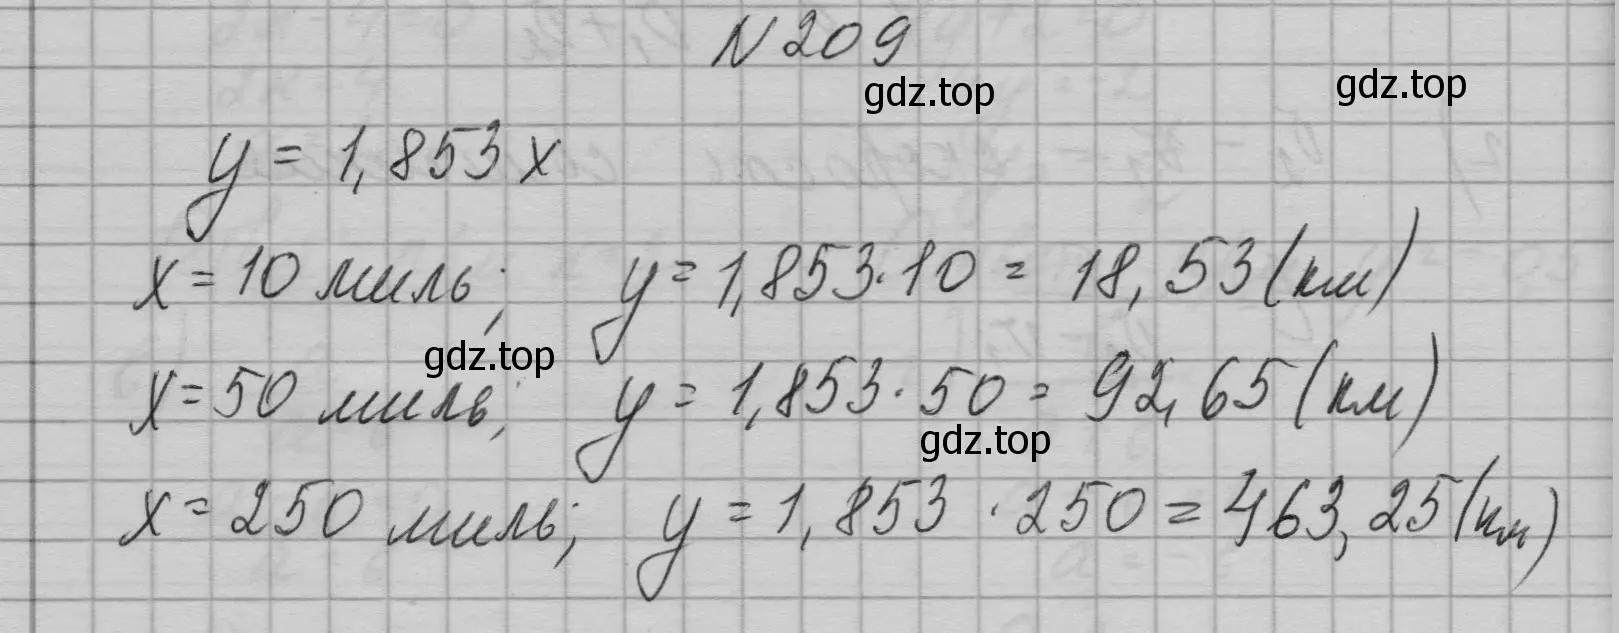 N 209
gdz.top
gdz.top
y = 1,853 x
x = 10 миль; y = 1,853 · 10 = 18,53 (км)
gdz.top
x = 50 миль; y = 1,853 · 50 = 92,65 (км)
gdz.top
x = 250 миль; y = 1,853 · 250 = 463,25 (км)